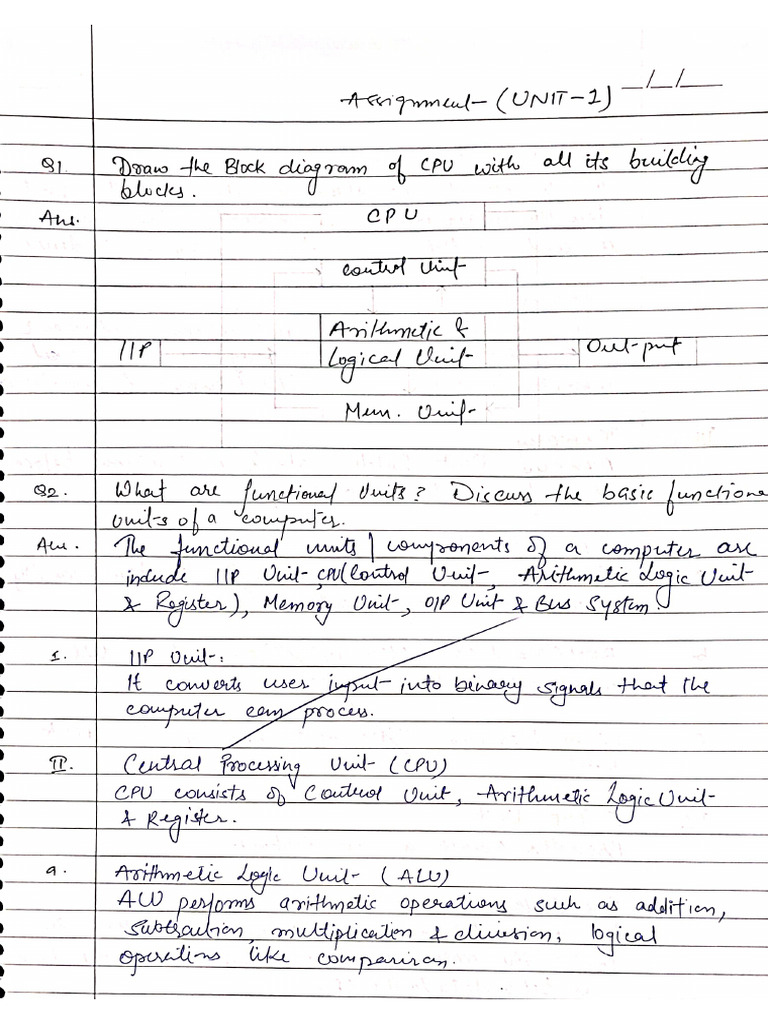 Assignment (UNIT-1) _/_/_
Q1. Draw the Block diagram of CPU with all its building
blocks.
Ans. CPU
control Unit
Arithmetic &
I/P Logical Unit Out-put
Mem. Unit
Q2. What are functional Units? Discuss the basic functiona
units of a computer.
Ans. The functional units/components of a computer are
include I/P Unit, CPU(Control Unit, Arithmetic Logic Unit
& Register), Memory Unit, O/P Unit & Bus System.
I. I/P Unit:
It converts user input into binary signals that the
computer can process.
II. Central Processing Unit (CPU)
CPU consists of Control Unit, Arithmetic Logic Unit
& Register.
a. Arithmetic Logic Unit (ALU)
ALU performs arithmetic operations such as addition,
subtraction, multiplication & division, logical
operations like comparison.